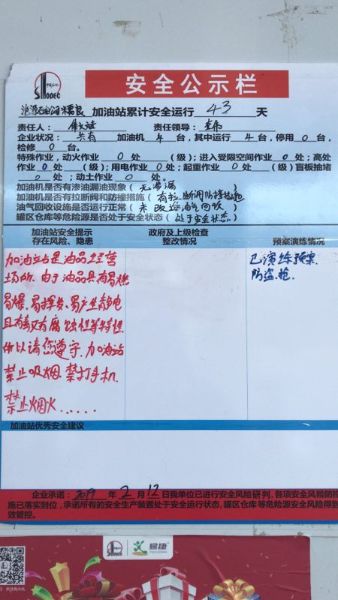 SINOPEC
安全公示栏
加油站累计安全运行 43 天
责任人： 责任领导：
企业状况： 共有 加油机 4 台，其中运行 4 台，停用 0 台，
检修 0 台。
特殊作业，动火作业 0 处（ ）；进入受限空间作业 0 处；高处
作业 0 处（ ）；用电作业 0 处；起重作业 0 处（ ）；盲板抽堵
0 处；动土作业 0 处。
加油机是否有渗油漏油现象（ 无渗漏 ）
加油机是否有拉断阀和防撞措施（ 有拉断阀防撞 ）
油气回收设施是否运行正常（ 未改造油气回收 ）
罐区仓库等危险源是否处于安全状态（ 处于安全状态 ）
加油站安全提示
存在风险、隐患
政府及上级检查
整改情况
预案演练情况
加油站是油品经营
场所。由于油品具有易燃
易爆、易挥发、易产生静电
且有毒又有腐蚀性等特性
所以请您遵守，加油站
禁止吸烟 禁打手机
禁止烟火......
已演练预案
防盗抢
加油站优秀安全建议
企业承诺：2019 年 2 月 12 日我单位已进行安全风险研判，各项安全风险防控措
施已落实到位，承诺所有的安全生产装置处于安全运行状态，罐区仓库等危险源安全风险得到有
效管控。
易捷